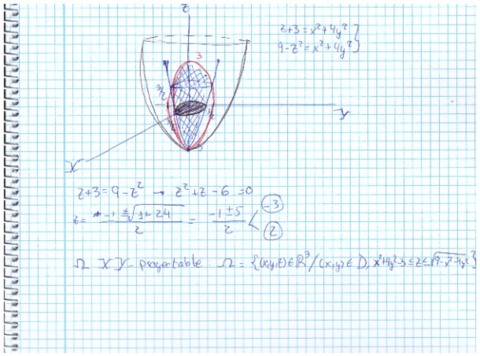 z
z+3=x²+4y²
9-z²=x²+4y²
3
y
X
z+3=9-z² → z²+z-6=0
z= -1 ±√1+24 / 2 = -1±5 / 2 < -3
2
Ω XY-proyectable Ω={(x,y,z)∈ℝ³/(x,y)∈D, x²+4y²-3≤z≤√9-x²-4y²}